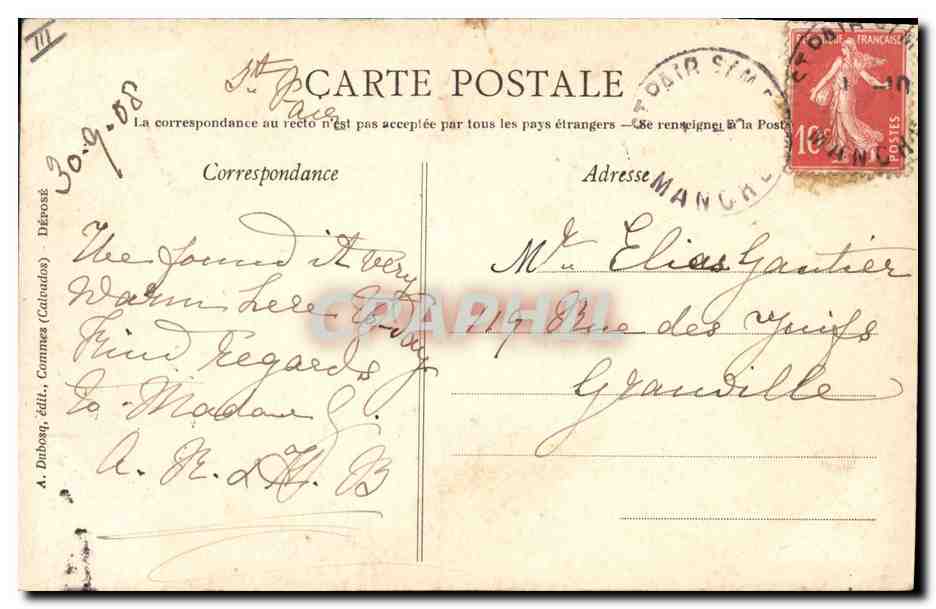 III
30-9-08
St. Pair
CARTE POSTALE
La correspondance au recto n'est pas acceptée par tous les pays étrangers — Se renseigner à la Poste
Correspondance
Adresse
ST PAIR S/M
MANCHE
ST PAIR S/M
MANCHE
FRANÇAISE
10c
POSTES
A. Dubosq, édit., Commes (Calvados) — DÉPOSÉ
We found it very
warm here to-day
Kind regards
to Madame G.
A. R. & H. B
Mr Elias Gautier
119 Rue des Juifs
Granville
CPARHIL